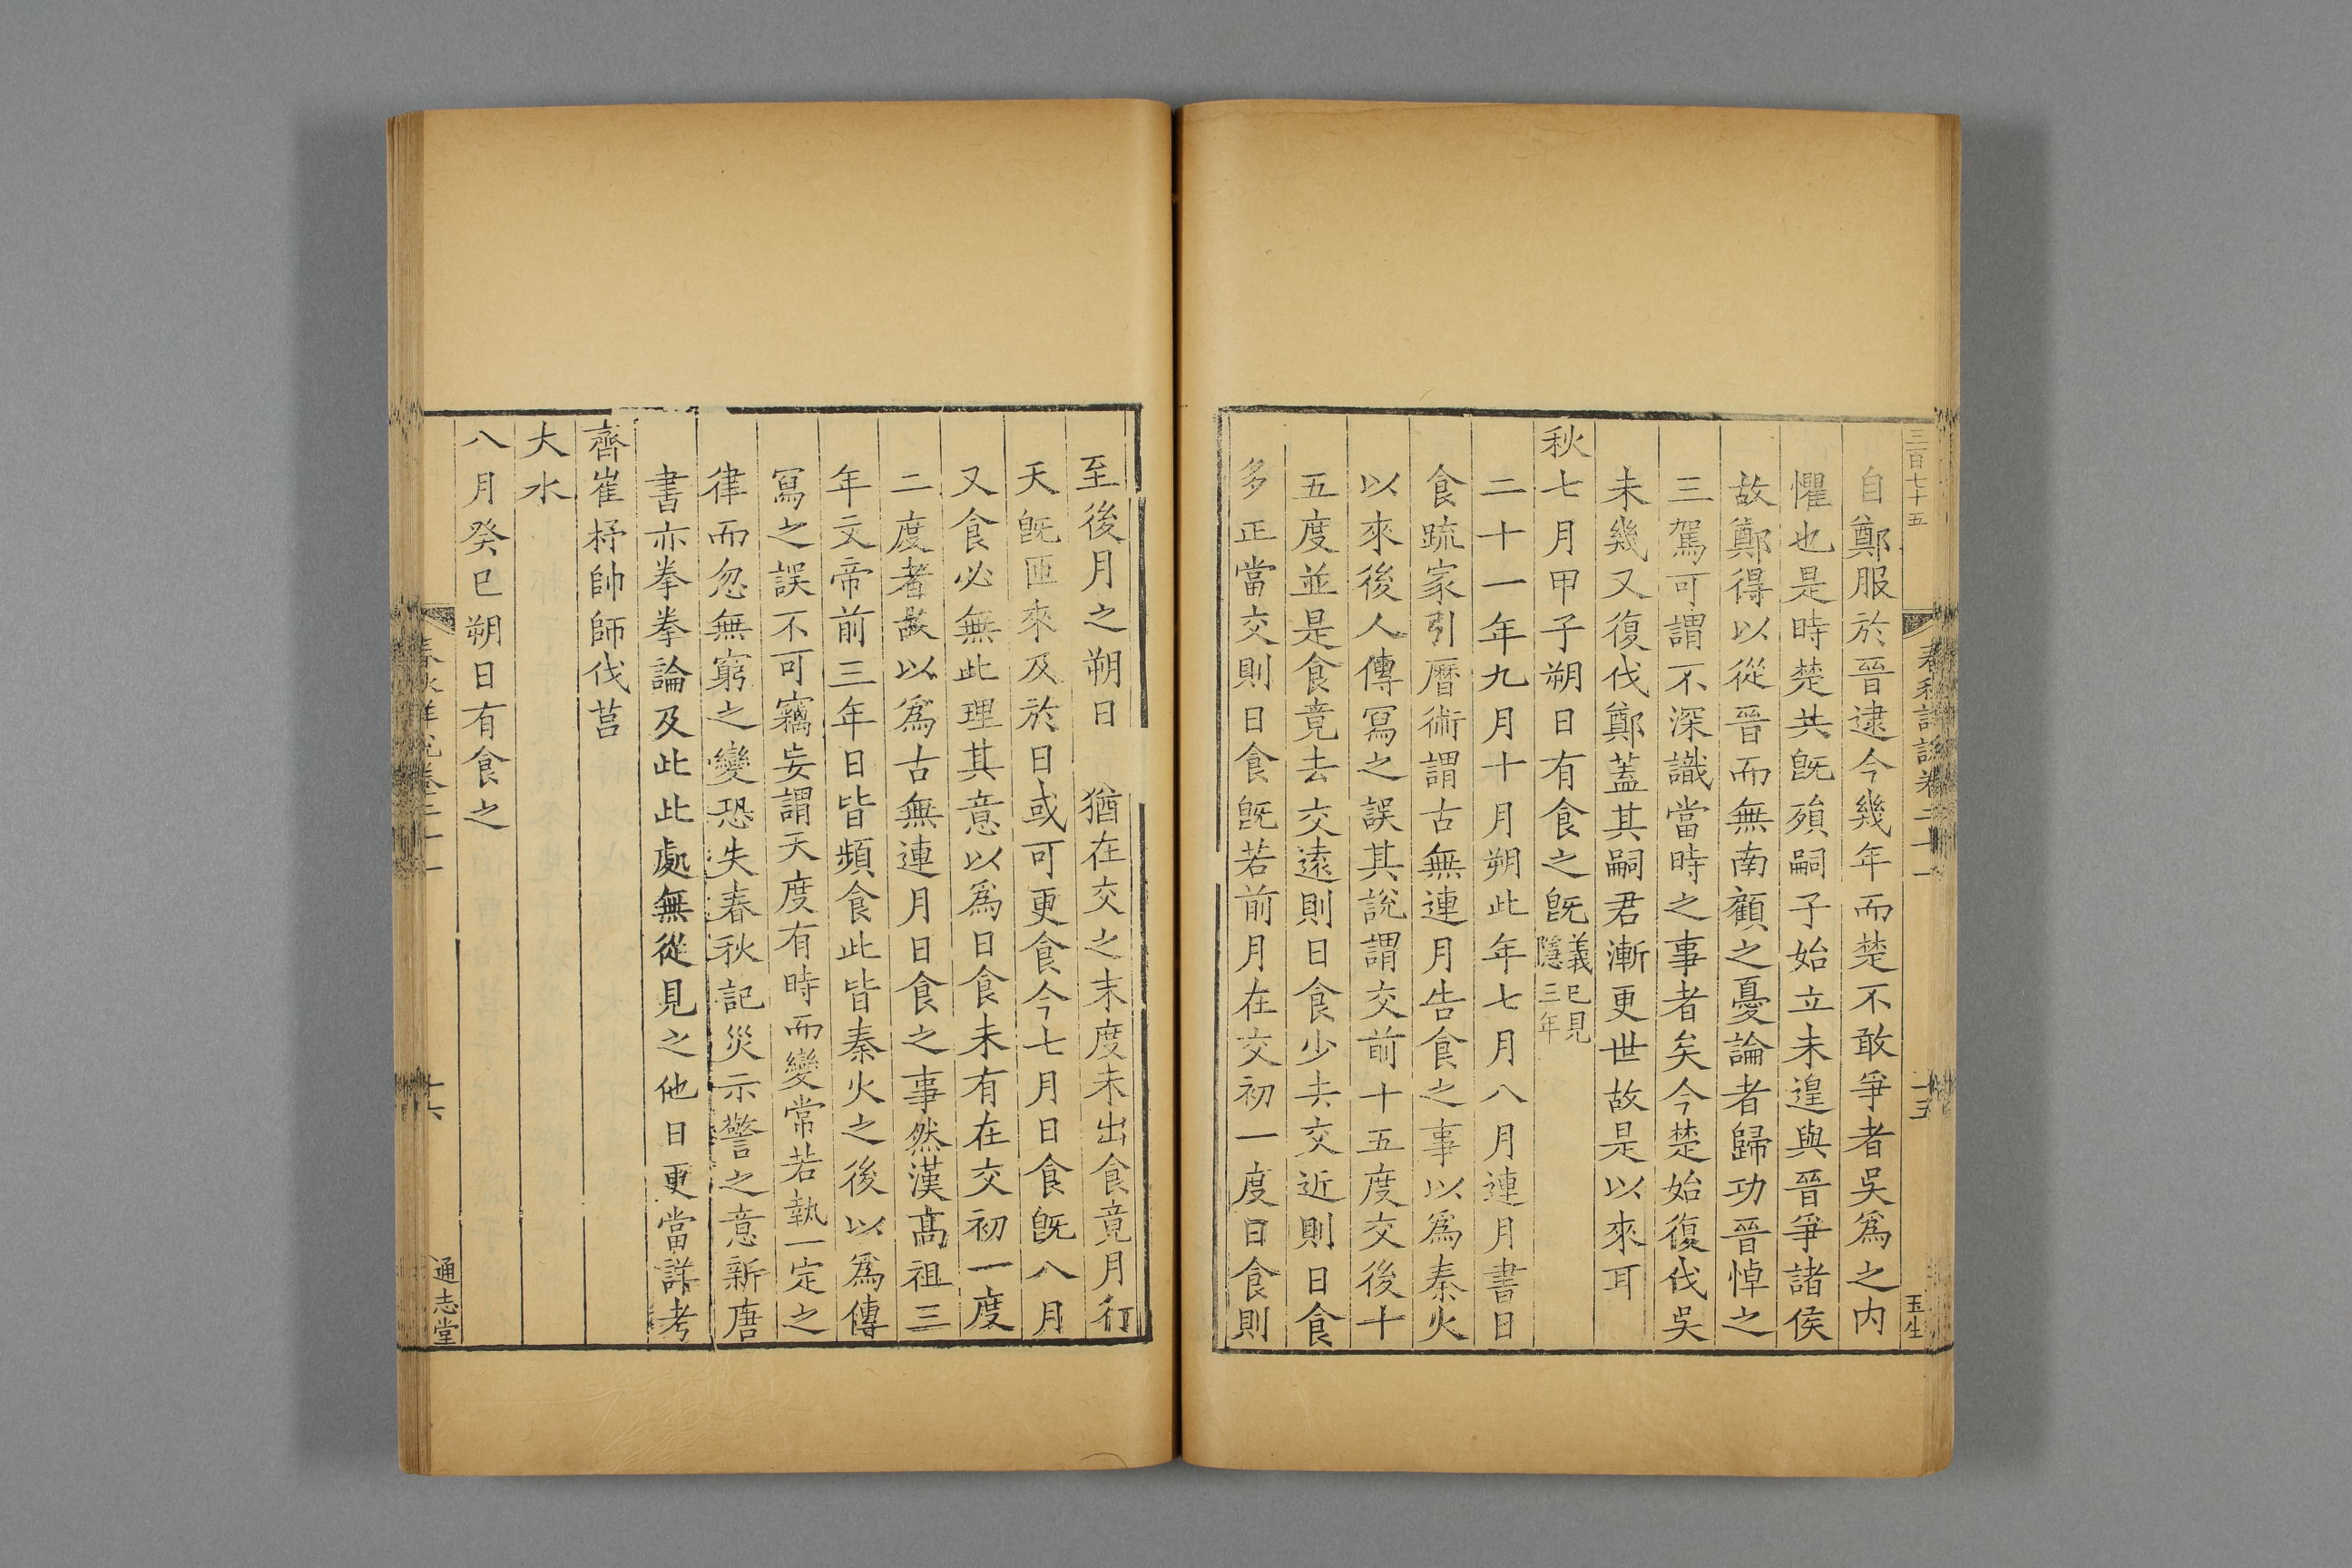 三百七十五
春秋詳說卷二十一
十五
玉生
自鄭服於晉逮今幾年而楚不敢爭者吳爲之內
懼也是時楚共旣殞嗣子始立未遑與晉爭諸侯
故鄭得以從晉而無南顧之憂論者歸功晉悼之
三駕可謂不深識當時之事者矣今楚始復伐吳
未幾又復伐鄭蓋其嗣君漸更世故是以來耳
秋七月甲子朔日有食之旣義已見隱三年
二十一年九月十月朔此年七月八月連月書日
食䟽家引曆術謂古無連月告食之事以爲秦火
以來後人傳寫之誤其說謂交前十五度交後十
五度並是食竟去交遠則日食少去交近則日食
多正當交則日食旣若前月在交初一度日食則
至後月之朔日 猶在交之末度未出食竟月行
天旣匝來及於日或可更食今七月日食旣八月
又食必無此理其意以爲日食未有在交初一度
二度者故以爲古無連月日食之事然漢高祖三
年文帝前三年日皆頻食此皆秦火之後以爲傳
寫之誤不可竊妄謂天度有時而變常若執一定之
律而忽無窮之變恐失春秋記災示警之意新唐
書亦拳拳論及此此處無從見之他日更當詳考
齊崔杼帥師伐莒
大水
八月癸巳朔日有食之
春秋詳說卷二十一
十六
通志堂